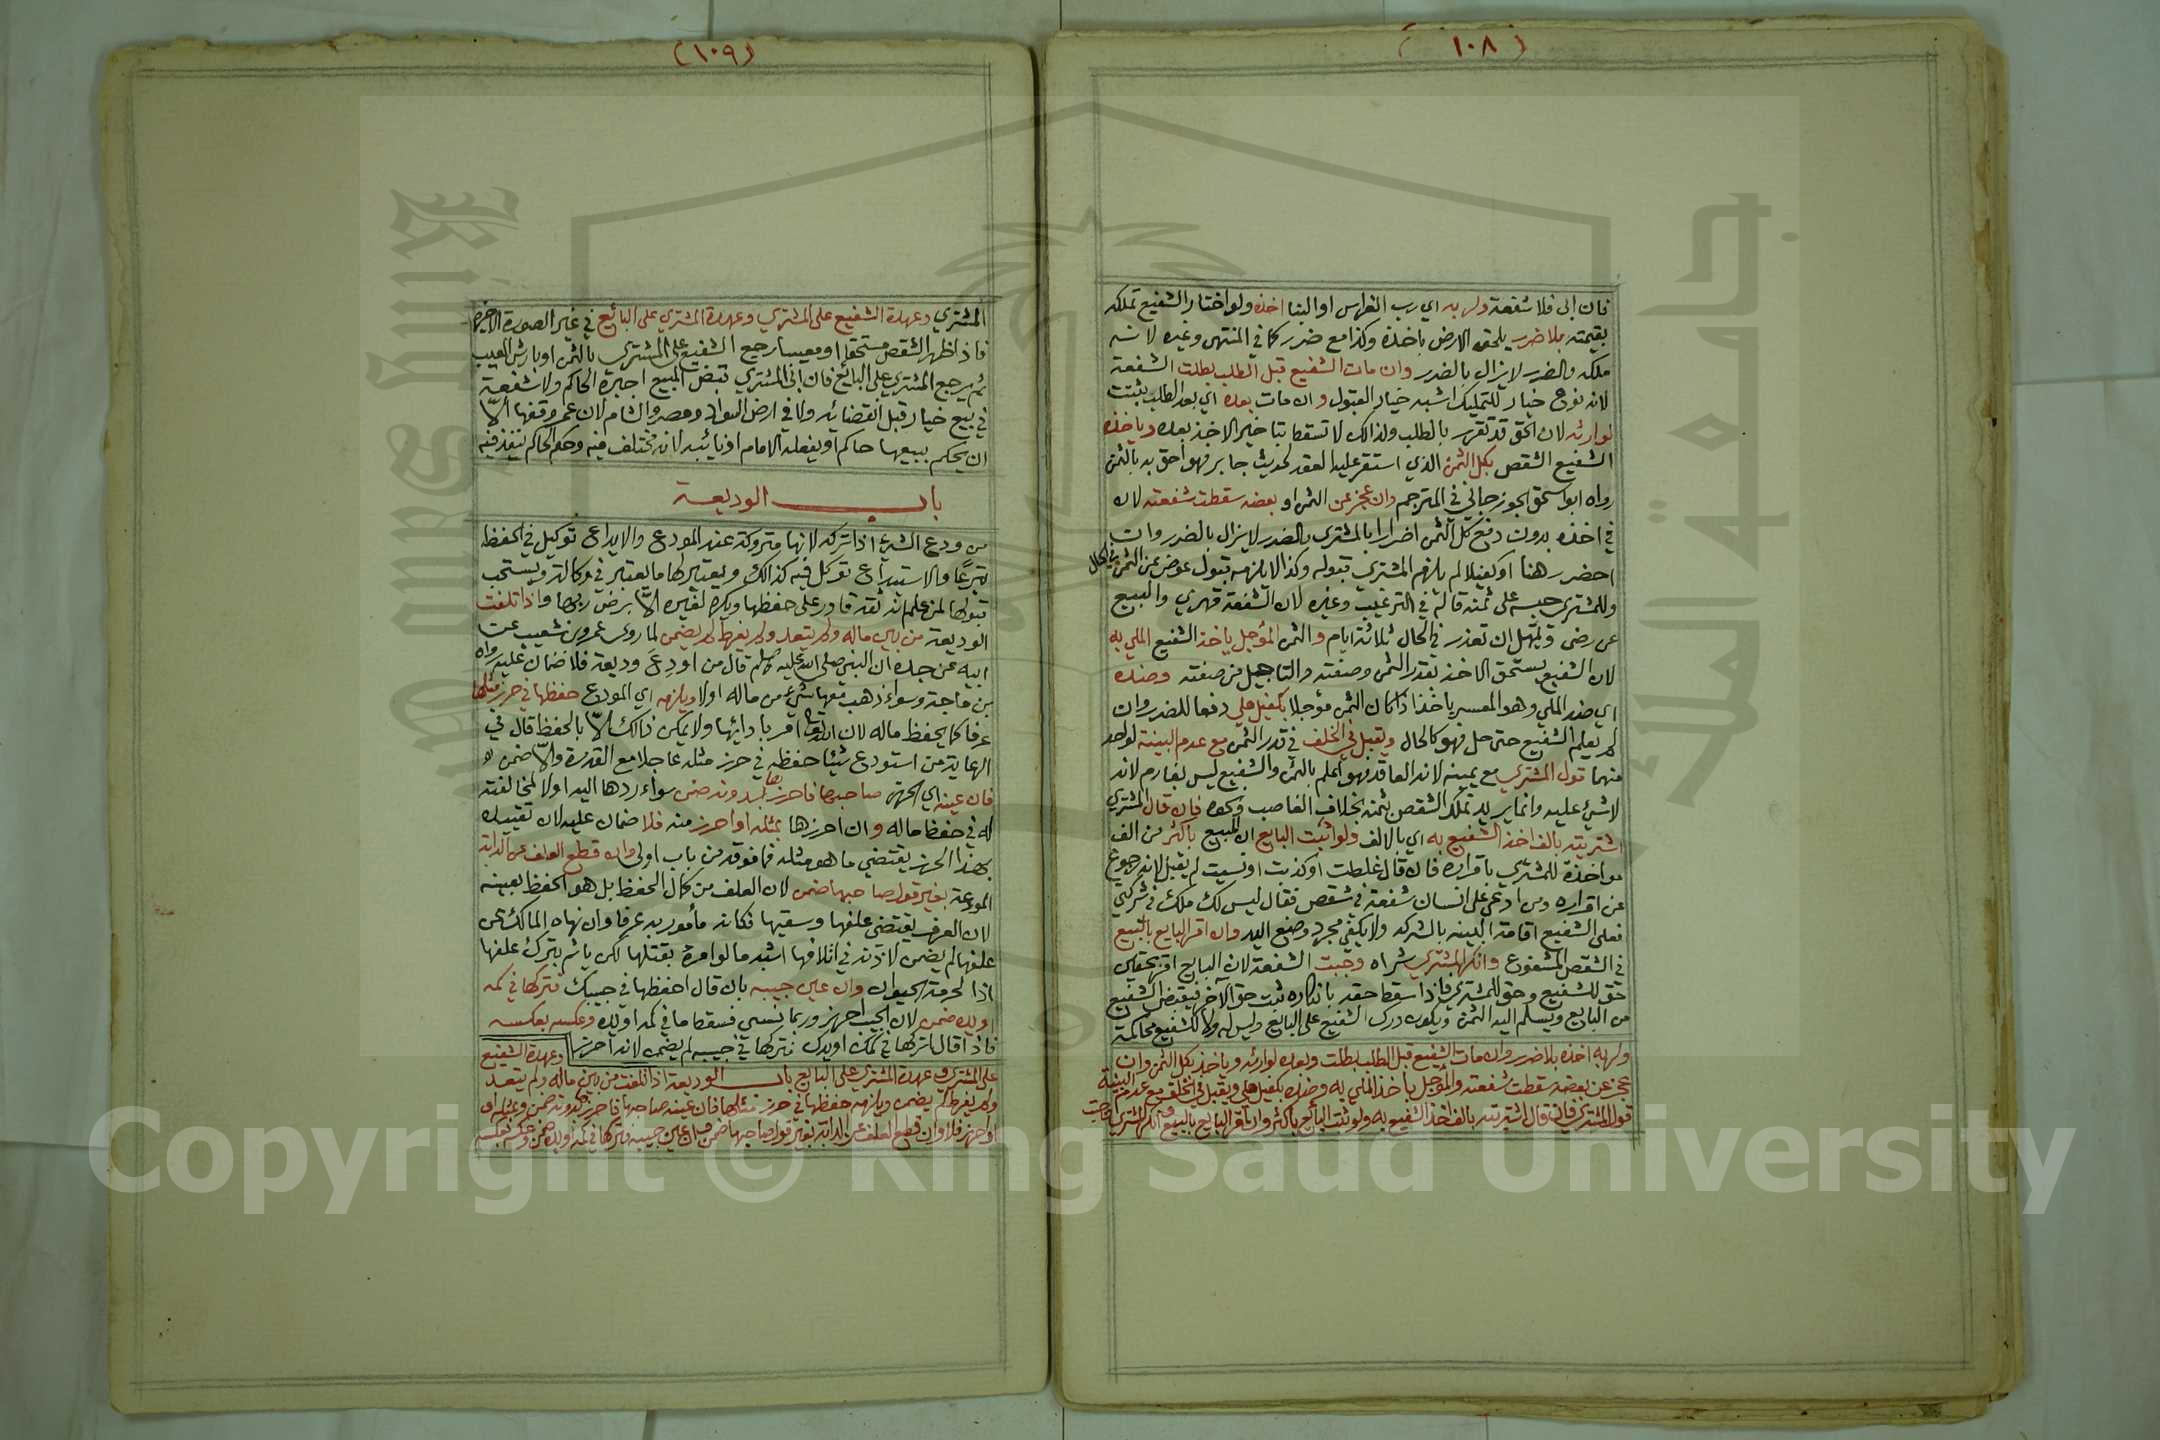 (١٠٨)
فان ابى فلا شفعة ولربه اي رب الغراس او البنا اخذه ولو اختار الشفيع تملكه
بقيمته بلا ضرر يلحق الارض باخذه وكذا مع ضرر كما في المنتهى وغيره لانه
ملكه والضرر لا يزال بالضرر وان مات الشفيع قبل الطلب بطلت الشفعة
لانه نوع خيار للتمليك اشبه خيار القبول وان مات بعده اي بعد الطلب ثبتت
لوارثه لان الحق قد تقرر بالطلب ولذالك لا تسقط بتاخير الاخذ بعده وياخذه
الشفيع الشقص بكل الثمن الذي استقر عليه العقد لحديث جابر فهو احق به بالثمن
رواه ابو اسحق الجوزجاني في المترجم وان عجز عن الثمن او بعضه سقطت شفعته لان
في اخذه بدون دفع كل الثمن اضرارا بالمشتري والضرر لا يزال بالضرر وان
احضر رهنا او كفيلا لم يلزم المشتري قبوله وكذا لا يلزمه قبول عوض عن الثمن
في الحال
وللمشتري حبسه على ثمنه قاله في الترغيب وغيره لان الشفعة قهري والبيع
عن رضى ويمهل ان تعذر في الحال ثلاثة ايام والثمن المؤجل ياخذ الشفيع الملي به
لان الشفيع يستحق الاخذ بقدر الثمن وصفته والتاجيل من صفته وضده
اي ضد الملي وهو المعسر ياخذ اذا كان الثمن مؤجلا بكفيل ملي دفعا للضرر وان
لم يعلم الشفيع حتى حل فهو كالحال ويقبل في الخلف في قدر الثمن مع عدم البينة لواحد
منهما قول المشتري مع يمينه لانه العاقد فهو اعلم بالثمن والشفيع ليس بغارم لانه
لاشئ عليه وانما يريد تملك الشقص بثمنه بخلاف الغاصب ونحوه فان قال المشتري
اشتريته بالف اخذ الشفيع به اي بالالف ولو اثبت البايع ان المبيع باكثر من الف
مواخذة للمشتري باقراره فان قال غلطت او كذبت او نسيت لم يقبل لانه رجوع
عن اقراره ومن ادعى على انسان شفعة في شقص فقال ليس لك ملك في شركتي
فعلى الشفيع اقامة البينه بالشركه ولا يكفي مجرد وضع اليد وان اقر البايع بالبيع
في الشقص المشفوع وانكر المشتري شراه وجبت الشفعة لان البايع اقر بحقين
حق للشفيع وحق للمشتري فاذا سقط حقه بانكاره ثبت حق الآخر فيقبض الشفيع
من البايع ويسلم اليه الثمن ويكون درك الشفيع على البايع وليس له ولا للشفيع محاكمة
ولربه اخذه بلا ضرر وان مات الشفيع قبل الطلب بطلت وبعده لوارثه وياخذ بكل الثمن وان
عجز عن بعضه سقطت شفعته والمؤجل ياخذ الملي به وضده بكفيل ملي ويقبل في الخلف مع عدم البينة
قول المشتري فان قال اشتريته بالف اخذ الشفيع به ولو ثبت البايع باكثر وان اقر البايع بالبيع وانكر المشتري وجبت
(١٠٩)
المشتري وعهدة الشفيع على المشتري وعهدة المشتري على البائع في غير الصورة الاخيرة
فاذا ظهر الشقص مستحقا او معيبا رجع الشفيع على المشتري بالثمن او بارش العيب
ثم يرجع المشتري على البائع فان ابى المشتري قبض المبيع اجبره الحاكم ولا شفعة
في بيع خيار قبل انقضائه ولا في ارض السواد ومصر والشام لان عمر وقفها الّا
ان يحكم ببيعها حاكم او يفعله الامام او نائبه لانه مختلف فيه وحكم الحاكم ينفذ فيه
باب الوديعة
من ودع الشئ اذا تركه لانها متروكة عند المودع والايداع توكيل في الحفظ
تبرعا والاستيداع توكل فيه كذالك ويعتبر لها ما يعتبر في وكالة ويستحب
قبولها لمن علم انه ثقة قادر على حفظها ويكره لغيره الّا برضى ربها واذا تلفت
الوديعة من بين ماله ولم يتعد ولم يفرط لم يضمن لما روى عمرو بن شعيب عن
ابيه عن جده ان النبي صلى الله عليه وسلم قال من اودع وديعة فلا ضمان عليه رواه
بن ماجة وسواء ذهب معها شئ من ماله اولا ويلزمه اي المودع حفظها في حرز مثلها
عرفا كما يحفظ ماله لان الله تعالى امر بادائها ولا يمكن ذالك الّا بالحفظ قال في
الرعاية من استودع شيئا حفظه في حرز مثله عاجلا مع القدرة والّا ضمن
فان عينه اي الحرز صاحبها فاحرزها بدونه ضمن سواء ردها اليه اولا لمخالفته
له في حفظ ماله وان احرزها بمثله او احرز منه فلا ضمان عليه لان تقييده
بهذا الحرز يقتضي ما هو مثله فما فوقه من باب اولى وان قطع العلف عن الدابة
المودعة بغير قول صاحبها ضمن لان العلف من كمال الحفظ بل هو الحفظ بعينه
لان العرف يقتضي علفها وسقيها فكانه مأمور به عرفا وان نهاه المالك عن
علفها لم يضمن لاذنه في اتلافها اشبه ما لو امره بقتلها لكن ياثم بترك علفها
اذا لحرمة الحيوان وان عين جيبه بان قال احفظها في جيبك فتركها في كمه
او يده ضمن لان الجيب احرز وربما نسي فسقط ما في كمه او يده وعكسه بعكسه
فاذا قال اتركها في كمك او يدك فتركها في جيبه لم يضمن لانه احرز
وعهدة الشفيع
على المشتري وعهدة المشتري على البايع باب الوديعة اذا تلفت من بين ماله ولم يتعد
ولم يفرط لم يضمن ويلزمه حفظها في حرز مثلها فان عينه صاحبها فاحرزها بدونه ضمن وبمثله او
احرز فلا وان قطع العلف عن الدابة بغير قول صاحبها ضمن وان عين جيبه فتركها في كمه او يده ضمن وعكسه بعكسه
جامعة الملك سعود
King Saud
Copyright © King Saud University